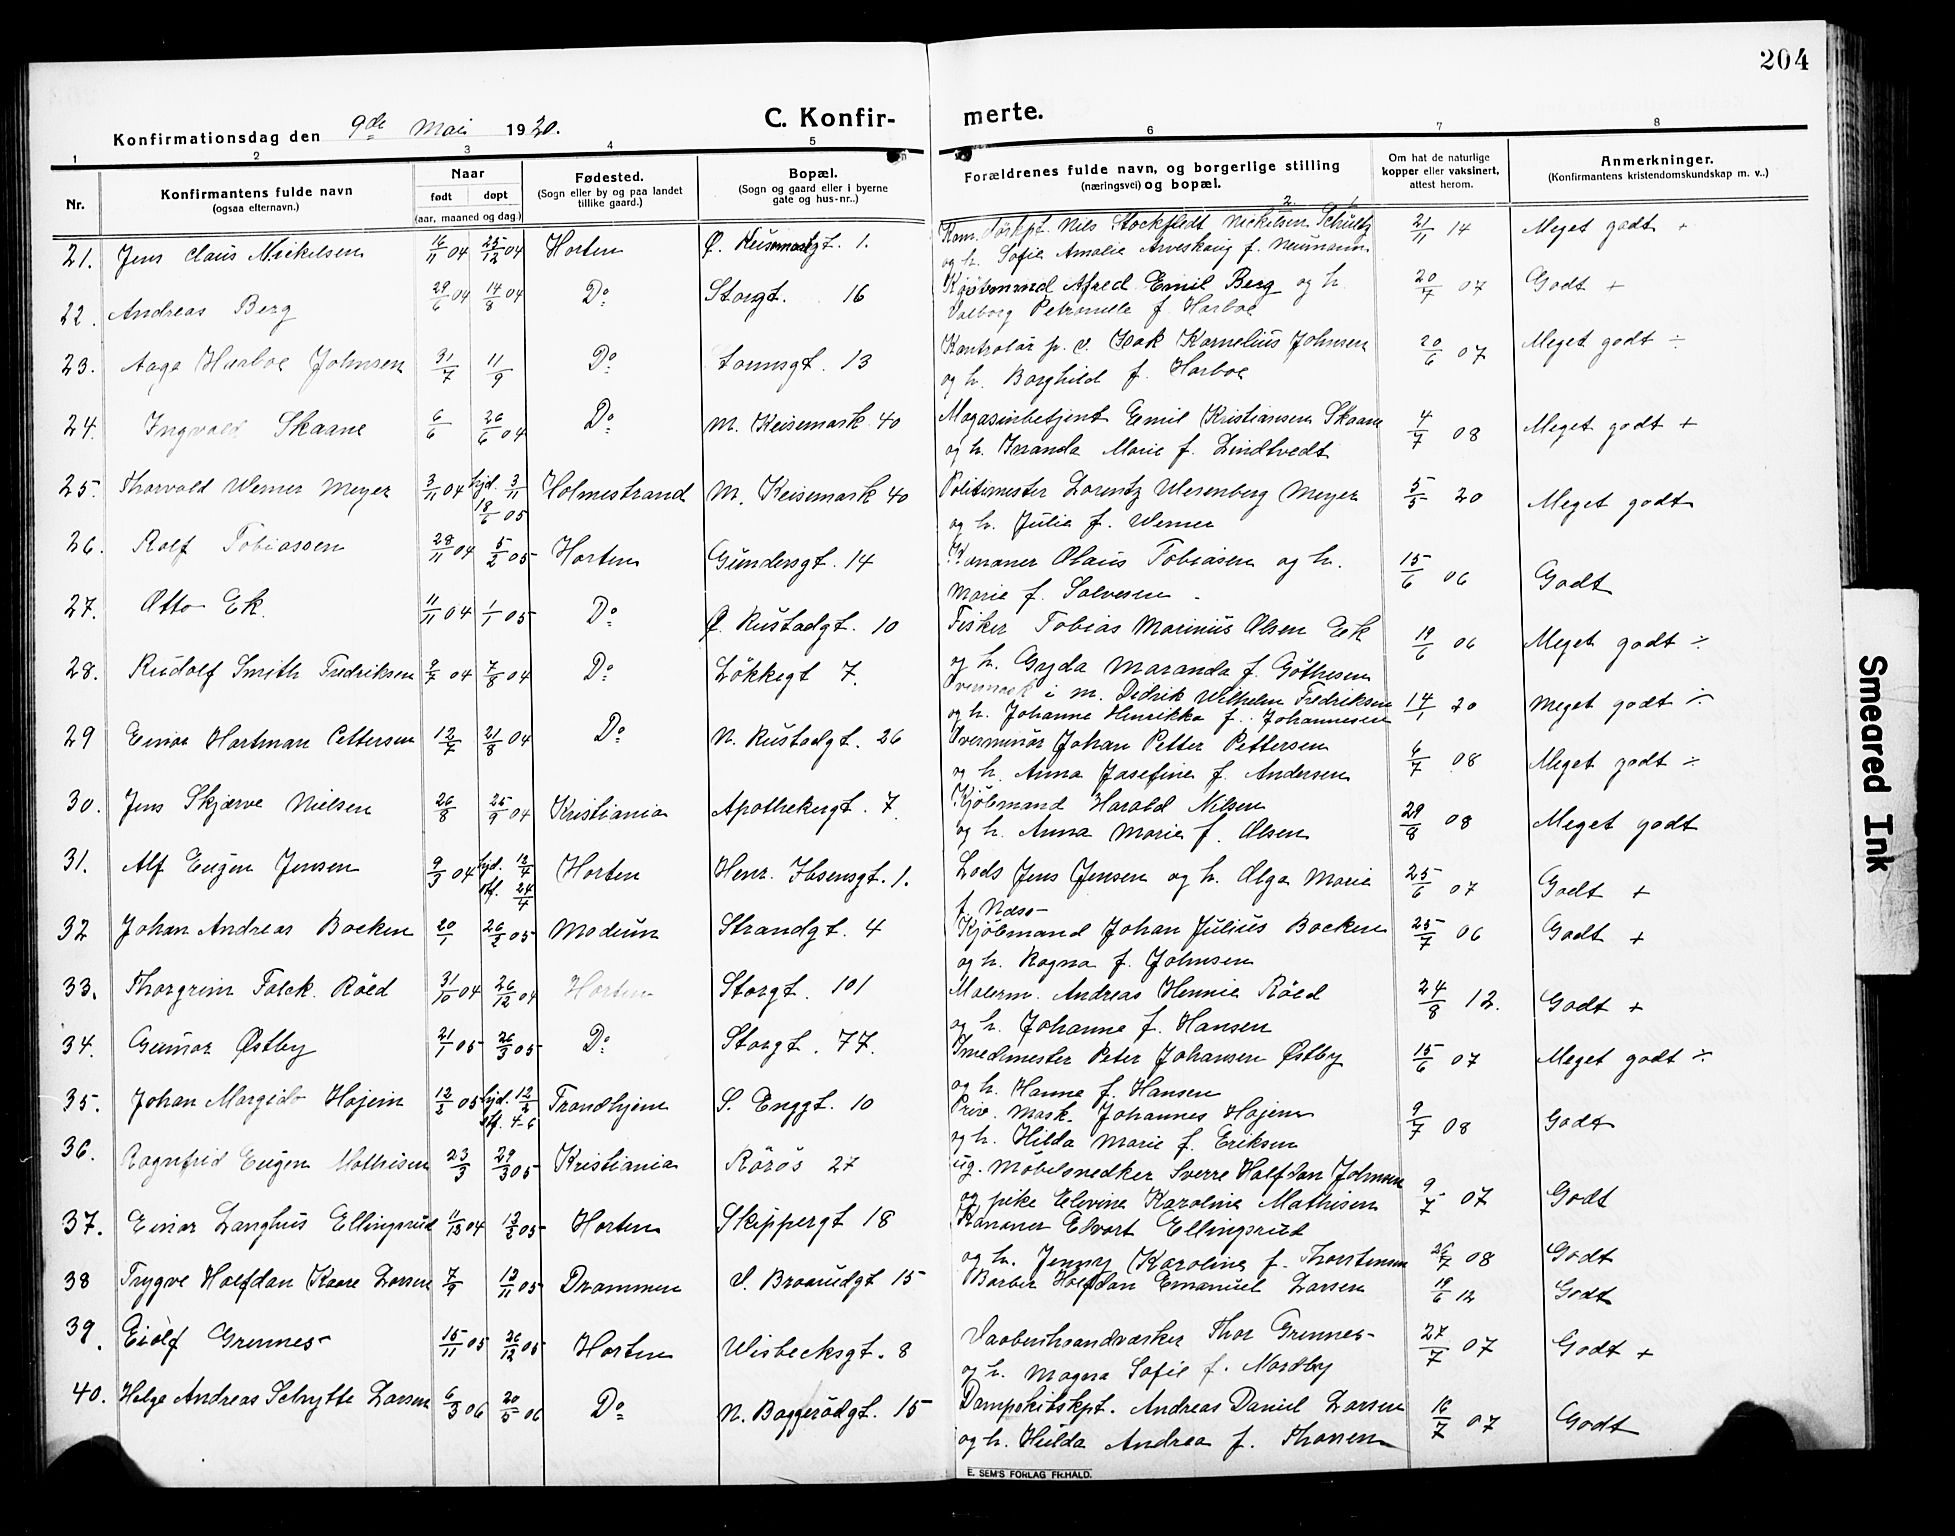 204
Konfirmationsdag den 9de Mai 1920.
C. Konfirmerte.
1 2 3 4 5 6 7 8
Nr. Konfirmantens fulde navn (ogsaa efternavn.) Naar født døpt (aar, maaned og dag.) Fødested. (Sogn eller by og paa landet tillike gaard.) Bopæl. (Sogn og gaard eller i byerne gate og hus-nr..) Forældrenes fulde navn, og borgerlige stilling (næringsvei) og bopæl. Om hat de naturlige kopper eller vaksinert, attest herom. Anmerkninger. (Konfirmantens kristendomskundskap m. v..)
21. Jens Claus Nickelsen 16/11 04 25/12 04 Horten Ø. 1. Nils Stockfledt Nickelsen Schultz 21/11 14 Meget godt +
og h. Sofie Amalie f. Neumann
22. Andreas Berg 29/6 04 14/8 04 Do Storgt. 16 Kjøbmand Alfred Emil Berg og h. 20/7 07 Godt +
Valborg Petronelle f. Harboe
23. Aage Harboe Johnsen 31/7 11/9 Do Tonnsgt. 13 Kontrolør Kornelius Johnsen 20/6 07 Meget godt ÷
og h. Borghild f. Harboe
24. Ingvald Skaane 6/6 26/6 04 Do M. Keisemark 40 Magasinbetjent Emil Kristiansen Skaane 4/7 08 Meget godt +
og h. Marie f. Lindtvedt
25. Thorvald Werner Meyer 3/11 04 hjd. 3/11 18/6 05 Holmestrand M. Keisemark 40 Politimester Lorentz Wesenberg Meyer 5/5 20 Meget godt
og h. Julie f. Werner
26. Rolf Tobiassen 28/11 04 5/2 05 Horten Gundersgt. 14 Kanoner Olaus Tobiasen og h. 15/6 06 Godt
Marie f. Salvesen
27. Otto Ek. 11/11 04 1/1 05 Do Ø. Rustadgt. 10 Fisker Tobias Marinus Olsen Eek 19/6 06 Meget godt ÷
og h. Gyda Maranda f. Göthesen
28. Rudolf Smith Fredriksen 2/7 04 7/8 04 Do Løkkegt 7. i m. Didrik Wilhelm Fredriksen 14/1 20 Meget godt ÷
og h. Johanne Henrikke f. Johannesen
29 Einar Hartman Pettersen 12/7 21/8 04 Do N. Rustadgt. 26 Overminør Johan Petter Pettersen 6/7 08 Meget godt ÷
og h. Anna Josefine f. Andersen
30. Jens Skjærve Nielsen 26/8 25/9 04 Kristiania Apothekergt. 7. Kjøbmand Harald Nilsen 29/8 08 Meget godt
og h. Anna Marie f. Olsen
31. Alf Eugen Jensen 9/3 04 hjd. 12/4 stf. 24/4 Horten Henr. Ibsensgt. 1. Lods Jens Jensen og h. Olga Marie 25/6 07 Godt +
f. Næss
32 Johan Andreas Bocken 20/1 26/2 05 Modum Strandgt. 4 Kjøbmand Johan Julius Bocken 25/7 06 Godt +
og h. Ragna f. Johnsen
33. Thorgrim Falck Röed 31/10 04 26/12 04 Horten Storgt. 101 Malerm. Andreas Hennie Röed 24/8 12. Godt +
og h. Johanne f. Hansen
34. Gunnar Østby 21/1 05 26/3 05 Do Storgt. 77. Smedmester Peter Johansen Østby 15/6 07 Meget godt ÷
og h. Hanne f. Hansen
35. Johan Margido Hojem 12/3 05 hjd. 12/3 stf. 4-6 Trondhjem S. Enggt. 10 Priv. Mask. Johannes Hojem 9/7 08 Godt
og h. Hilda Marie f. Eriksen
36. Ragnfrid Eugen Mathisen 23/3 29/3 05 Kristiania Rörös 27 ug. Møbelsnedker Sverre Halfdan Johnsen 9/7 07 Godt
og pike Elevine Karoline Mathisen
37. Einar Langhus Ellingsrud 11/12 04 12/2 05 Horten Skippergt 18 Kanoner Edvart Ellingsrud 26/7 08 Godt
og h. Jenny Karoline f. Thorstensen
38 Trygve Halfdan Kaare Larsen 7/9 12/11 05 Drammen J. Braarudgt 15 Barber Halfdan Emanuel Larsen 19/6 12 Godt
39. Eiolf Grennes 15/11 05 26/12 05 Horten Wisbecksgt. 8 Vaabenhaandværker Thor Grennes 27/7 07 Godt +
og h. Magna Sofie f. Nordby
40. Helge Andreas Schytte Larsen 6/3 06 20/5 06 Do N. Baggerødgt. 15 Dampskibskpt. Andreas Daniel Larsen 16/7 07 Godt
og h. Hulda Andrea f. Thoresen
E. SEM'S FORLAG FR.HALD.
Smeared Ink